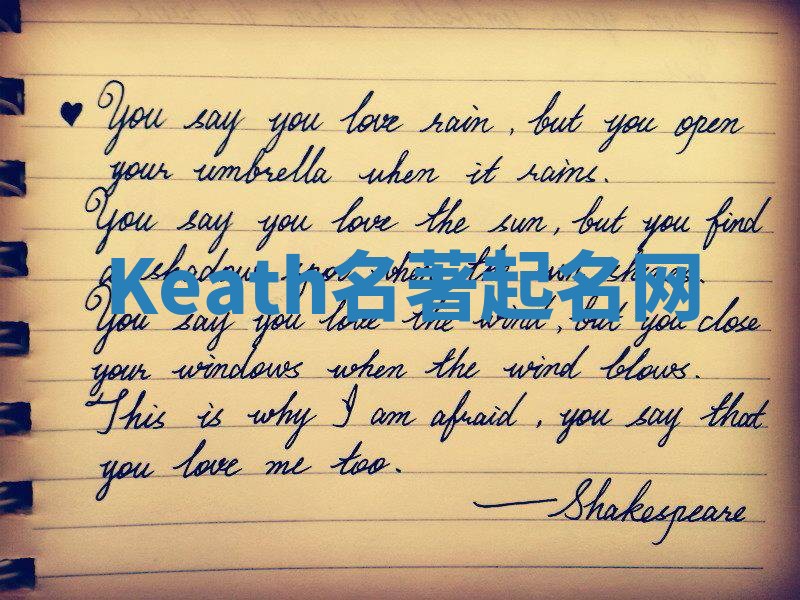 ♥ You say you love rain, but you open
your umbrella when it rains.
You say you love the sun, but you find
a shadow spot when the sun shines.
Keath名著起名网
You say you love the wind, but you close
your windows when the wind blows.
This is why I am afraid, you say that
you love me too.
— Shakespeare